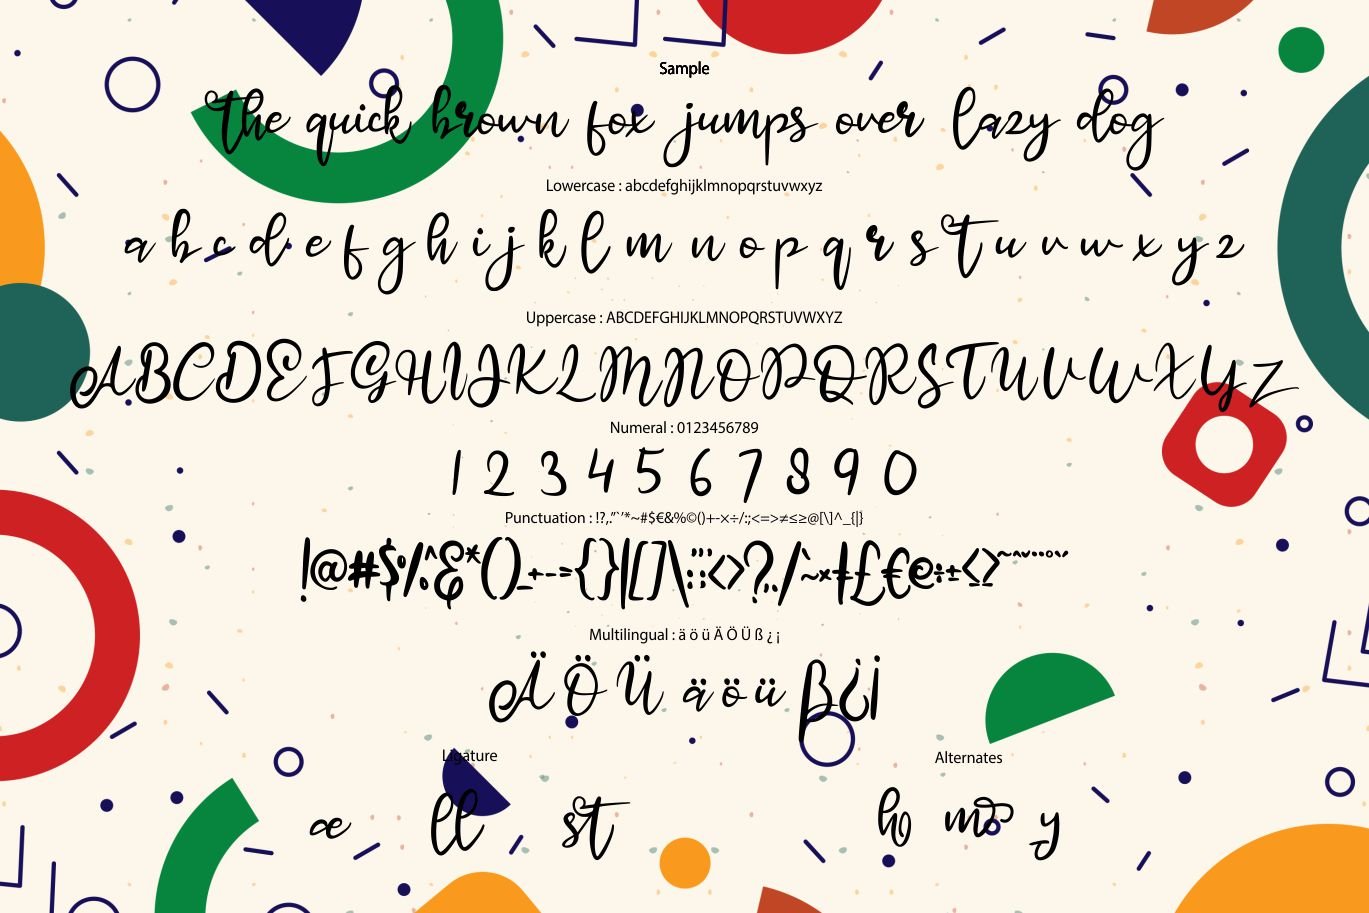 Sample
The quick brown fox jumps over lazy dog
Lowercase : abcdefghijklmnopqrstuvwxyz
a b c d e f g h i j k l m n o p q r s t u v w x y z
Uppercase : ABCDEFGHIJKLMNOPQRSTUVWXYZ
ABCDEFGHIJKLMNOPQRSTUVWXYZ
Numeral : 0123456789
1 2 3 4 5 6 7 8 9 0
Punctuation : !?,."`'*~#$€&%©()+-×÷/:;<=>≠≤≥@[\]^_{|}
!@#$%^&*()_+--={}|[]\:;<>?,./`~×±££€@÷±≤≥~^ˇ˘¨˚
Multilingual : ä ö ü Ä Ö Ü ß ¿ ¡
Ä Ö Ü ä ö ü ß¿¡
Ligature Alternates
æ ll st h m y